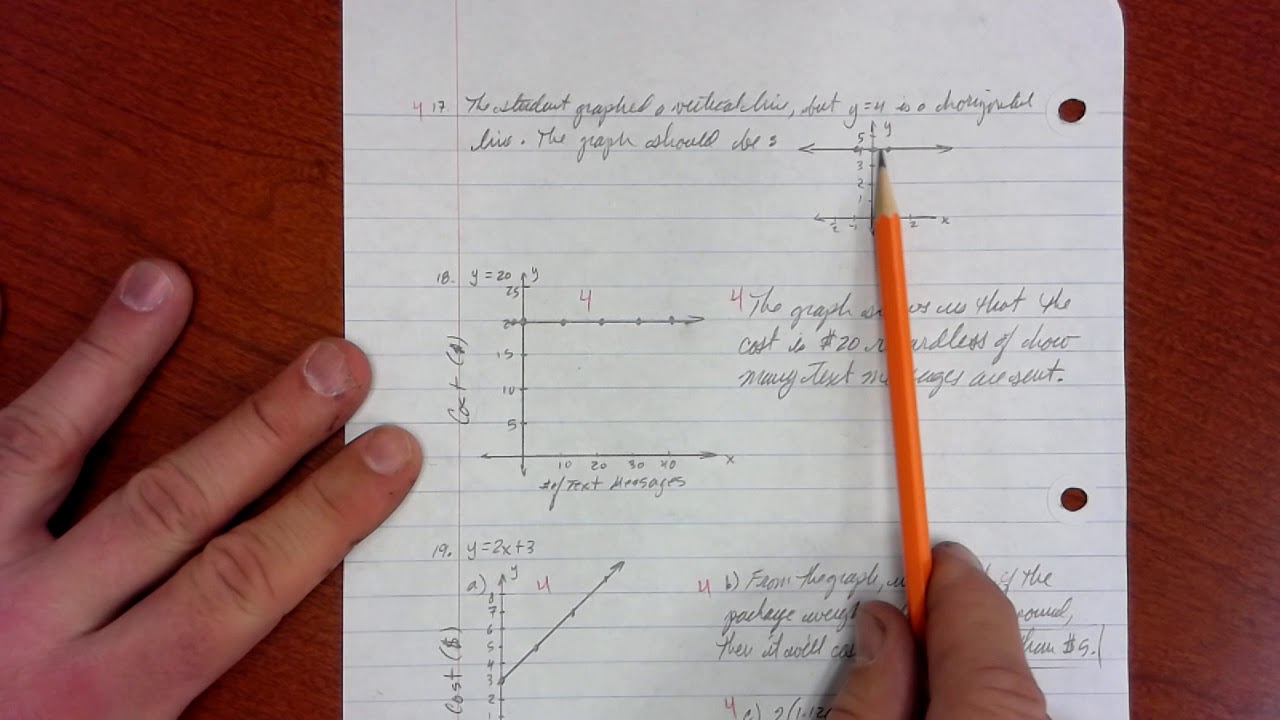 4 17. The student graphed a vertical line, but y=4 is a horizontal
line. The graph should be:
y
5
4
3
2
1
-2 -1 2 x
18. y=20 y
25
20
15
10
5
10 20 30 40 x
Cost ($)
# of Text Messages
4
4 The graph us that the
cost is $20 of how
many text are sent.
19. y=2x+3
a) y 4
8
7
6
5
4
3
2
1
Cost ($)
4 b) From the graph, of the
package
then it will than $5.
4 c)